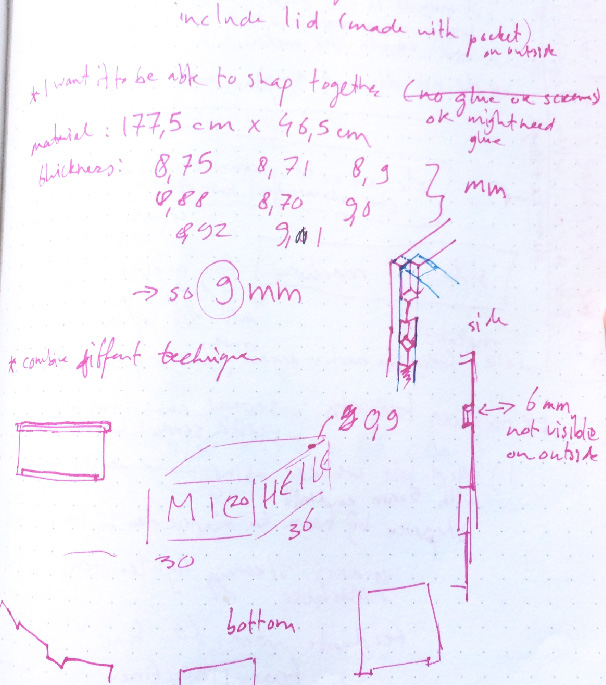 include lid (made with pocket)
on outside
* I want it to be able to snap together (no glue or screws)
ok might need
glue
material : 177,5 cm x 46,5 cm
thickness: 8,75 8,71 8,9
8,88 8,70 9,0
8,92 9,01
} mm
→ so 9 mm
side
* combine diffent technique
6 mm
not visible
on outside
0,9
MICRO HEILE
36
30
bottom